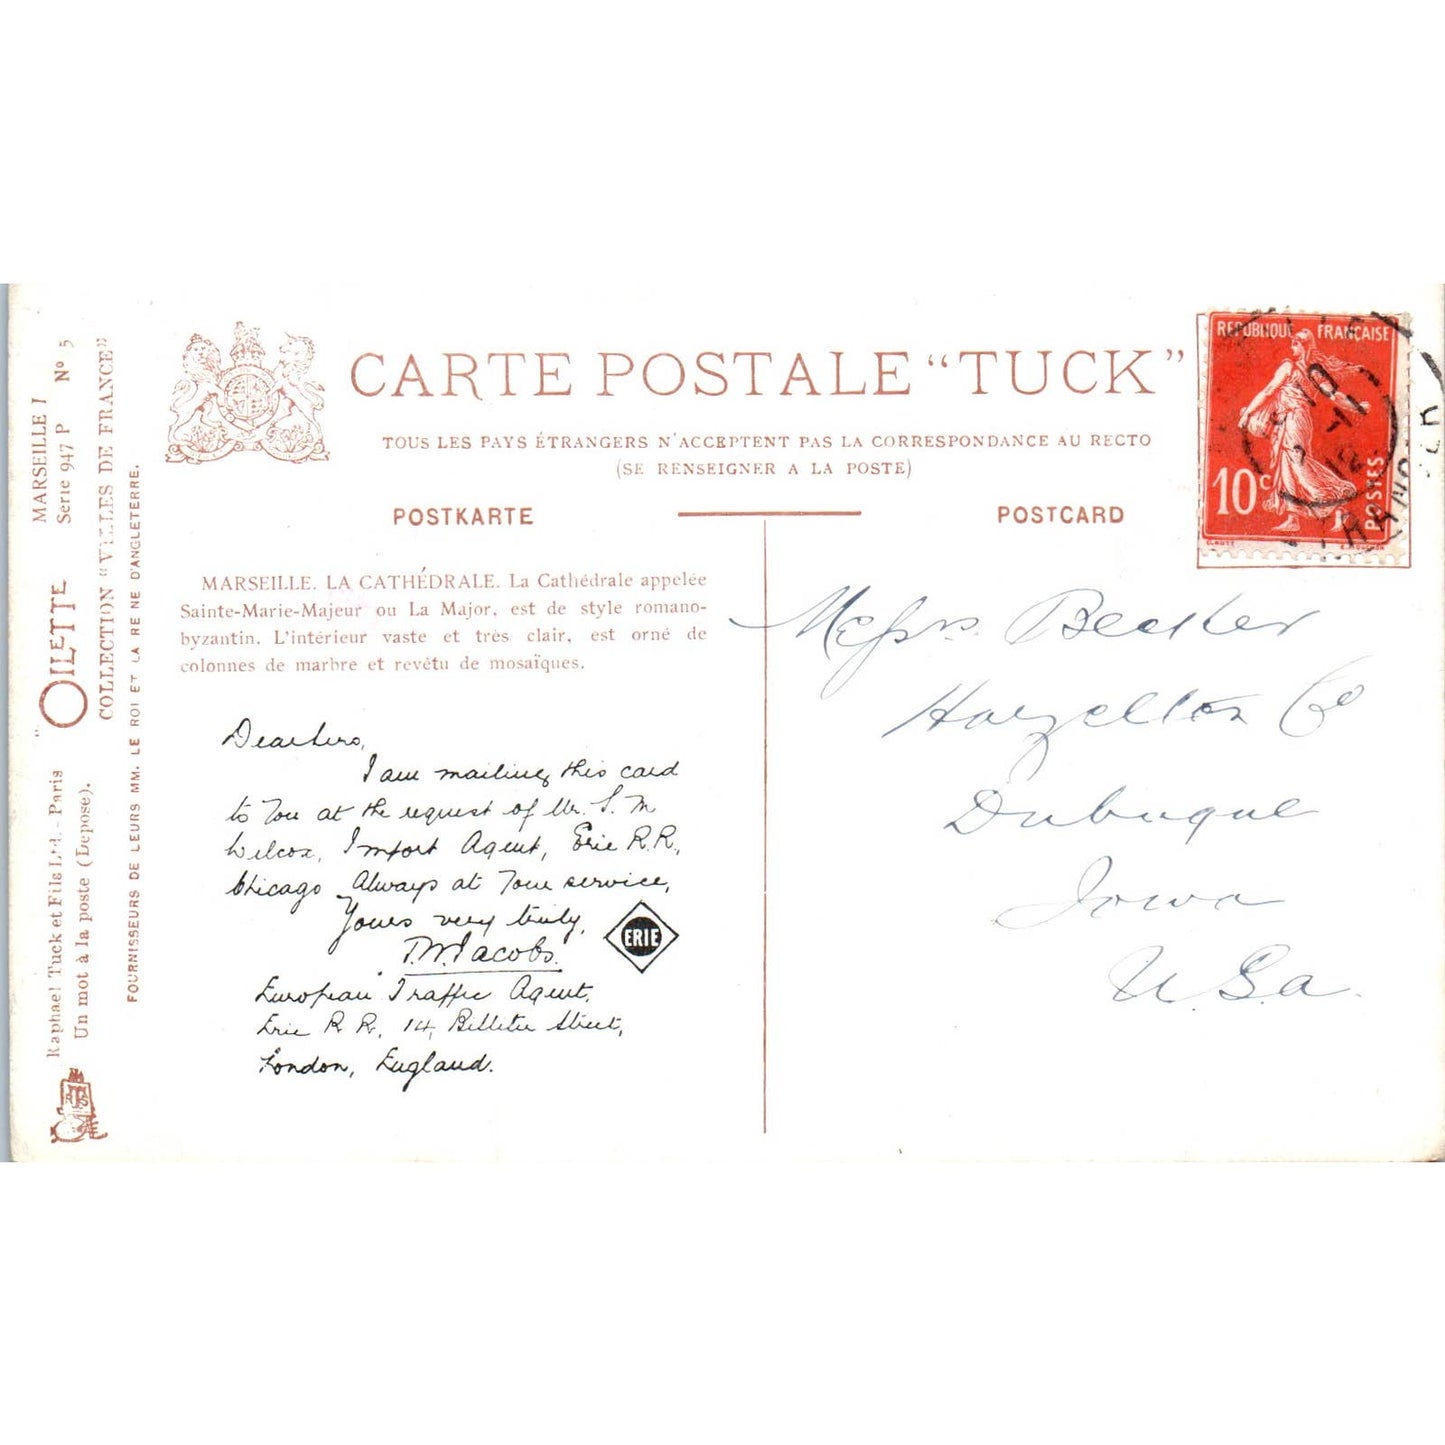 MARSEILLE I
Serie 947 P Nº 5
"OILETTE
COLLECTION "VILLES DE FRANCE"
Raphael Tuck et Fils Ltd.- Paris
Un mot à la poste (Depose).
FOURNISSEURS DE LEURS MM. LE ROI ET LA REINE D'ANGLETERRE.
CARTE POSTALE "TUCK"
TOUS LES PAYS ÉTRANGERS N'ACCEPTENT PAS LA CORRESPONDANCE AU RECTO
(SE RENSEIGNER A LA POSTE)
POSTKARTE
POSTCARD
MARSEILLE. LA CATHÉDRALE. La Cathédrale appelée
Sainte-Marie-Majeur ou La Major, est de style romano-
byzantin. L'intérieur vaste et très clair, est orné de
colonnes de marbre et revêtu de mosaïques.
Dear Sirs,
I am mailing this card
to You at the request of Mr. S. M
Wilcox, Import Agent, Erie R.R.,
Chicago Always at Your service,
Yours very truly,
T.W. Jacobs.
ERIE
European Traffic Agent,
Erie R R, 14, Billiter Street,
London, England.
REPUBLIQUE FRANÇAISE
10c
POSTES
Messrs. Becker
Hazelton Co
Dubuque
Iowa
U.S.a.